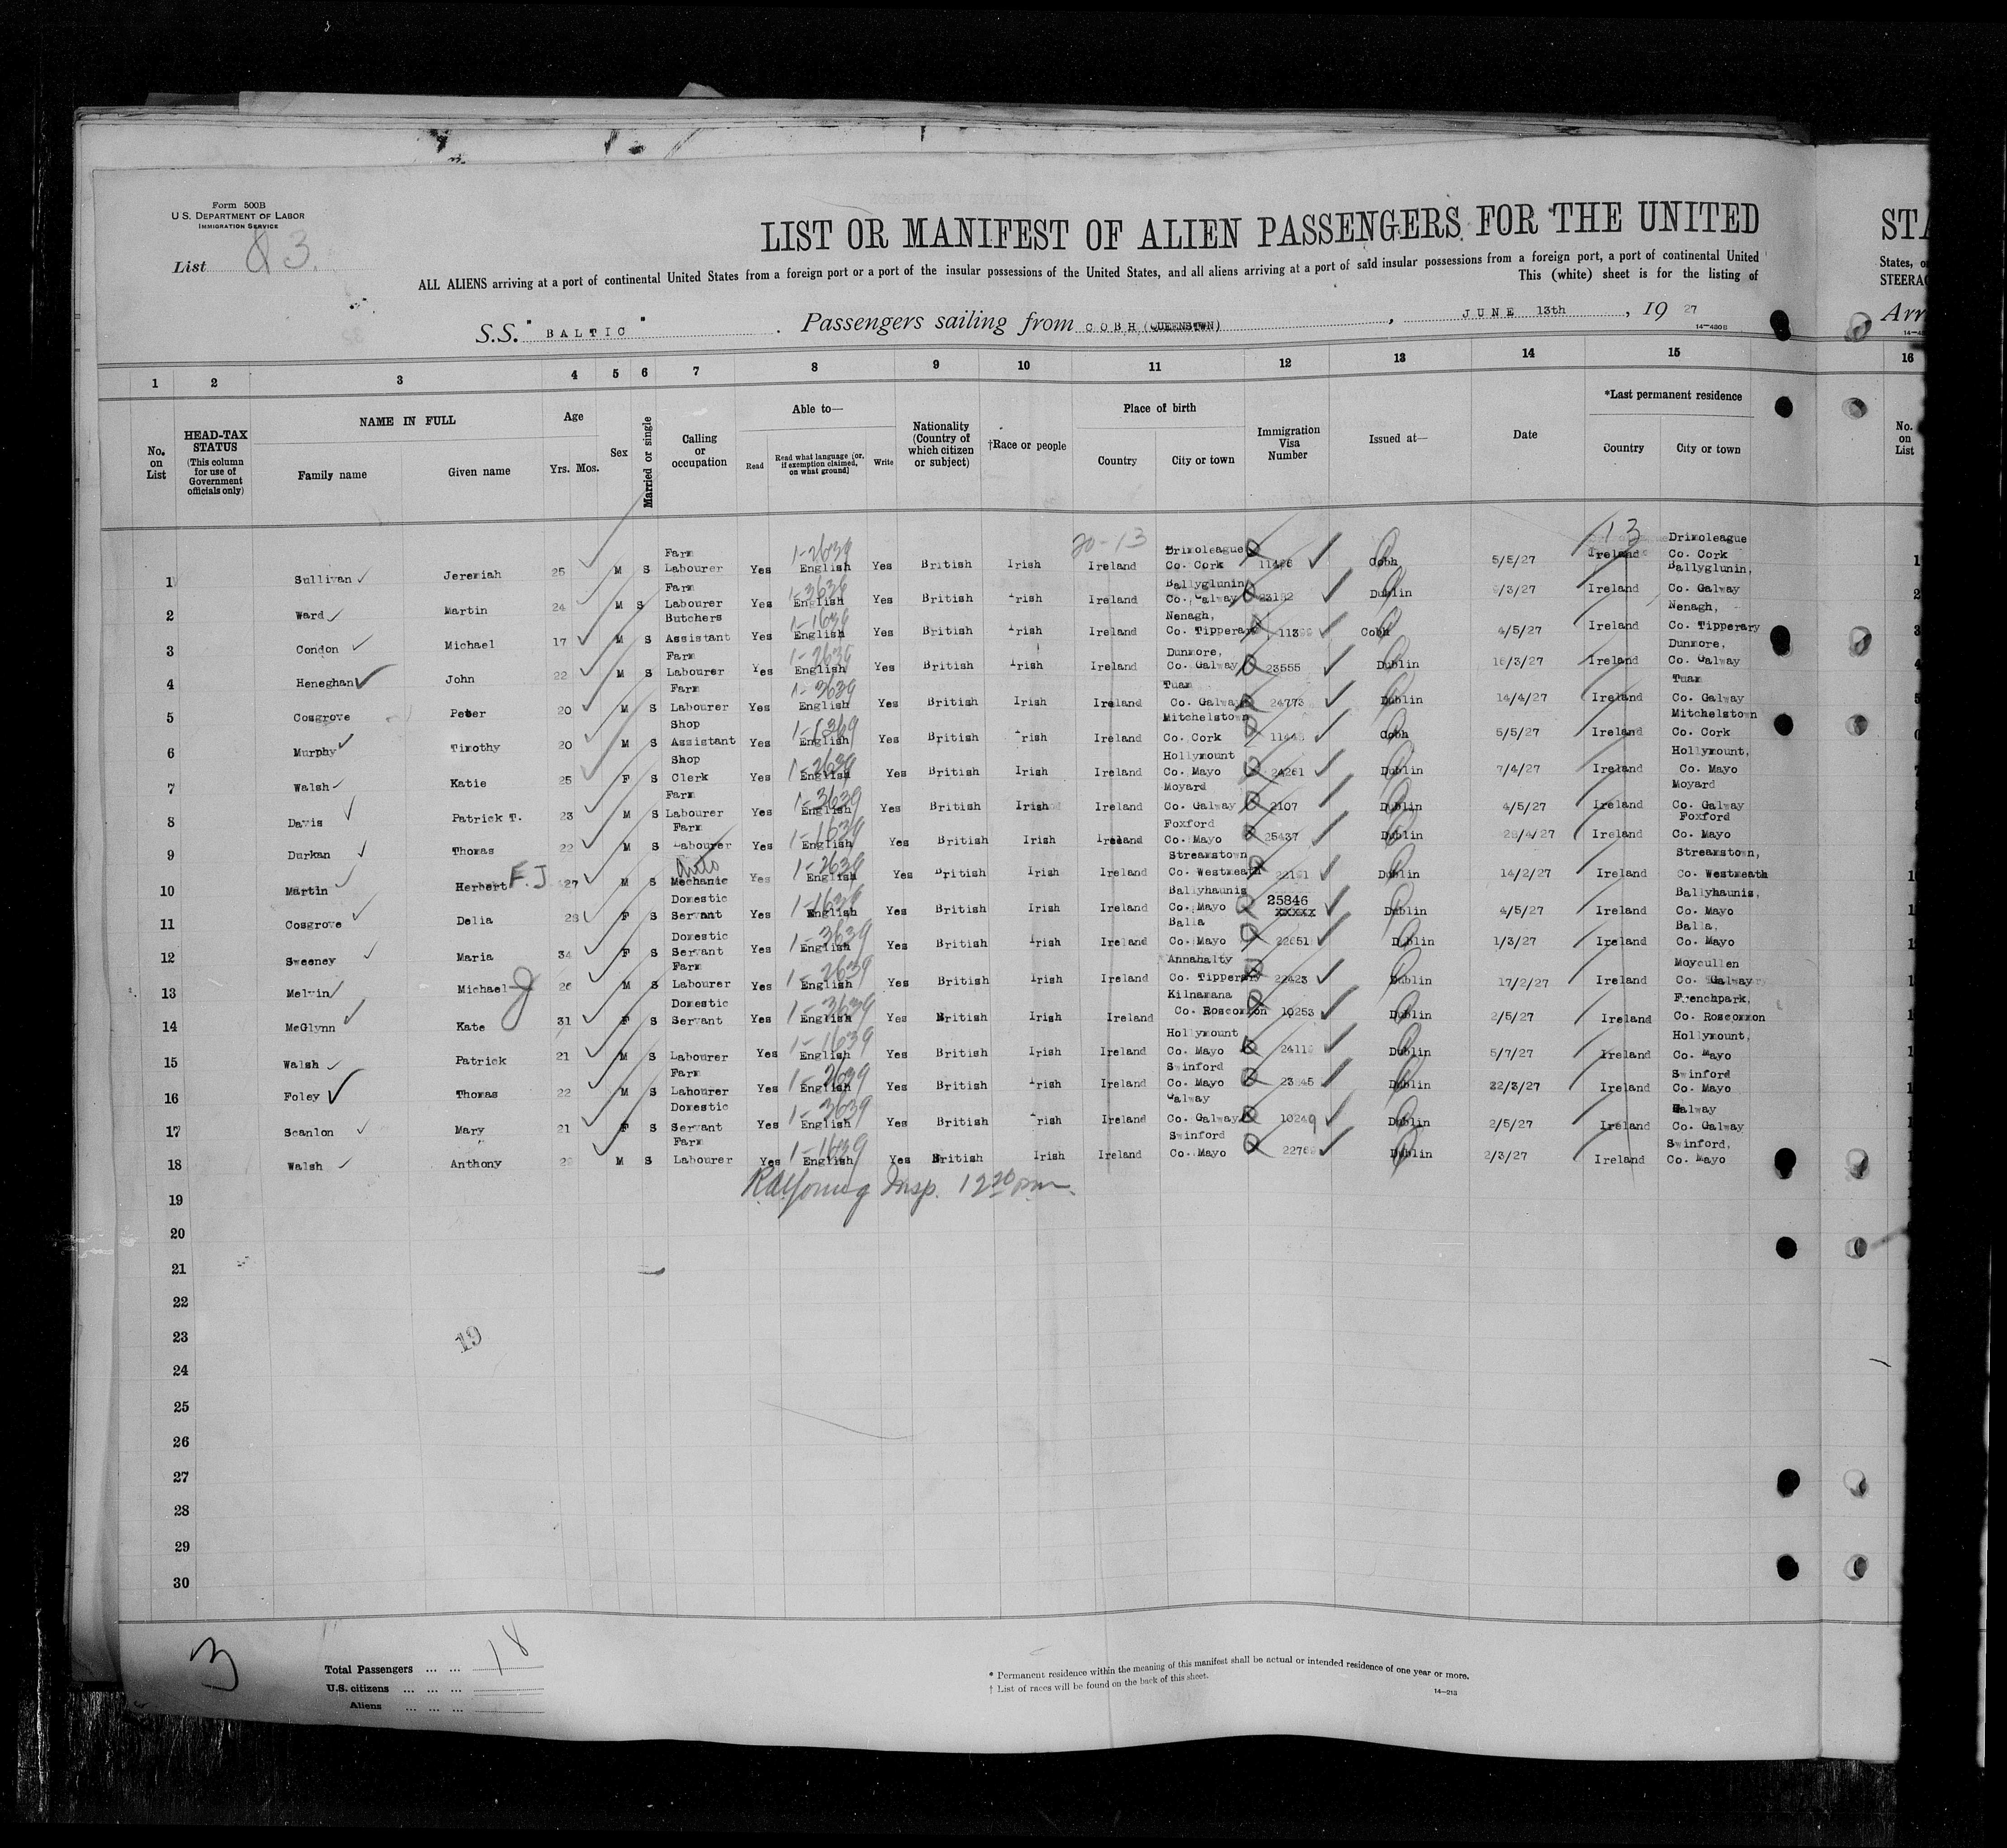 Form 500B
U.S. DEPARTMENT OF LABOR
IMMIGRATION SERVICE
List 3.
LIST OR MANIFEST OF ALIEN PASSENGERS FOR THE UNITED
STA
ALL ALIENS arriving at a port of continental United States from a foreign port or a port of the insular possessions of the United States, and all aliens arriving at a port of said insular possessions from a foreign port, a port of continental United
States, o
This (white) sheet is for the listing of
STEERAG
S.S. "BALTIC" . Passengers sailing from COBH (QUEENSTWN) , JUNE 13th , 19 27
Arr
14-430B
1 2 3 4 5 6 7 8 9 10 11 12 13 14 15 16
No. on List
HEAD-TAX STATUS (This column for use of Government officials only)
NAME IN FULL
Family name Given name
Age
Yrs. Mos.
Sex
Married or single
Calling or occupation
Able to—
Read Read what language (or, if exemption claimed, on what ground) Write
Nationality (Country of which citizen or subject)
†Race or people
Place of birth
Country City or town
Immigration Visa Number
Issued at—
Date
*Last permanent residence
Country City or town
No. on List
20-13 13
1 Sullivan Jeremiah 25 M S Farm Labourer Yes 1-2639 English Yes British Irish Ireland Drimoleague Co. Cork Cobh 5/5/27 Ireland Drimoleague Co. Cork
2 Ward Martin 24 M S Farm Labourer Yes 1-3639 English Yes British Irish Ireland Ballyglunin Co. Galway 23182 Dublin /3/27 Ireland Ballyglunin, Co. Galway
3 Condon Michael 17 M S Butchers Assistant Yes 1-1639 English Yes British Irish Ireland Nenagh, Co. Tipperary Cobh 4/5/27 Ireland Nenagh, Co. Tipperary
4 Heneghan John 22 M S Farm Labourer Yes 1-2639 English Yes British Irish Ireland Dunmore, Co. Galway 23555 Dublin 16/3/27 Ireland Dunmore, Co. Galway
5 Cosgrove Peter 20 M S Farm Labourer Yes 1-3639 English Yes British Irish Ireland Tuam Co. Galway 24773 Dublin 14/4/27 Ireland Tuam Co. Galway
6 Murphy Timothy 20 M S Shop Assistant Yes English Yes British Irish Ireland Mitchelstown Co. Cork Cobh 5/5/27 Ireland Mitchelstown Co. Cork
7 Walsh Katie 25 F S Shop Clerk Yes 1-2639 English Yes British Irish Ireland Hollymount Co. Mayo 24261 Dublin 7/4/27 Ireland Hollymount, Co. Mayo
8 Davis Patrick T. 23 M S Farm Labourer Yes 1-3639 English Yes British Irish Ireland Moyard Co. Galway 2107 Dublin 4/5/27 Ireland Moyard Co. Galway
9 Durkan Thomas 22 M S Farm Labourer Yes 1-1639 English Yes British Irish Ireland Foxford Co. Mayo 25437 Dublin 28/4/27 Ireland Foxford Co. Mayo
10 Martin Herbert F.J 27 M S Auto Mechanic Yes 1-2639 English Yes British Irish Ireland Streamstown Co. Westmeath Dublin 14/2/27 Ireland Streamstown, Co. Westmeath
11 Cosgrove Delia 28 F S Domestic Servant Yes 1-1639 English Yes British Irish Ireland Ballyhaunis Co. Mayo 25846 XXXXX Dublin 4/5/27 Ireland Ballyhaunis, Co. Mayo
12 Sweeney Maria 34 F S Domestic Servant Yes 1-3639 English Yes British Irish Ireland Balla Co. Mayo 22651 Dublin 1/3/27 Ireland Balla, Co. Mayo
13 Melvin Michael J 26 M S Farm Labourer Yes 1-2639 English Yes British Irish Ireland Annahalty Co. Tipperary 22423 Dublin 17/2/27 Ireland Moycullen Co. Galway
14 McGlynn Kate 31 F S Domestic Servant Yes 1-3639 English Yes British Irish Ireland Kilnamana Co. Roscommon 10253 Dublin 2/5/27 Ireland Frenchpark, Co. Roscommon
15 Walsh Patrick 21 M S Labourer Yes 1-1639 English Yes British Irish Ireland Hollymount Co. Mayo Dublin 5/7/27 Ireland Hollymount, Co. Mayo
16 Foley Thomas 22 M S Farm Labourer Yes 1-2639 English Yes British Irish Ireland Swinford Co. Mayo Dublin 22/3/27 Ireland Swinford Co. Mayo
17 Scanlon Mary 21 F S Domestic Servant Yes 1-3639 English Yes British Irish Ireland Galway Co. Galway 10249 Dublin 2/5/27 Ireland Galway Co. Galway
18 Walsh Anthony M S Farm Labourer Yes 1-1639 English Yes British Irish Ireland Swinford Co. Mayo Dublin 2/3/27 Ireland Swinford, Co. Mayo
19
Insp. 12 20 pm.
20
21
22
23
19
24
25
26
27
28
29
30
3
Total Passengers ... ... 18
U.S. citizens ... ... ...
Aliens ... ... ...
* Permanent residence within the meaning of this manifest shall be actual or intended residence of one year or more.
† List of races will be found on the back of this sheet.
14-213